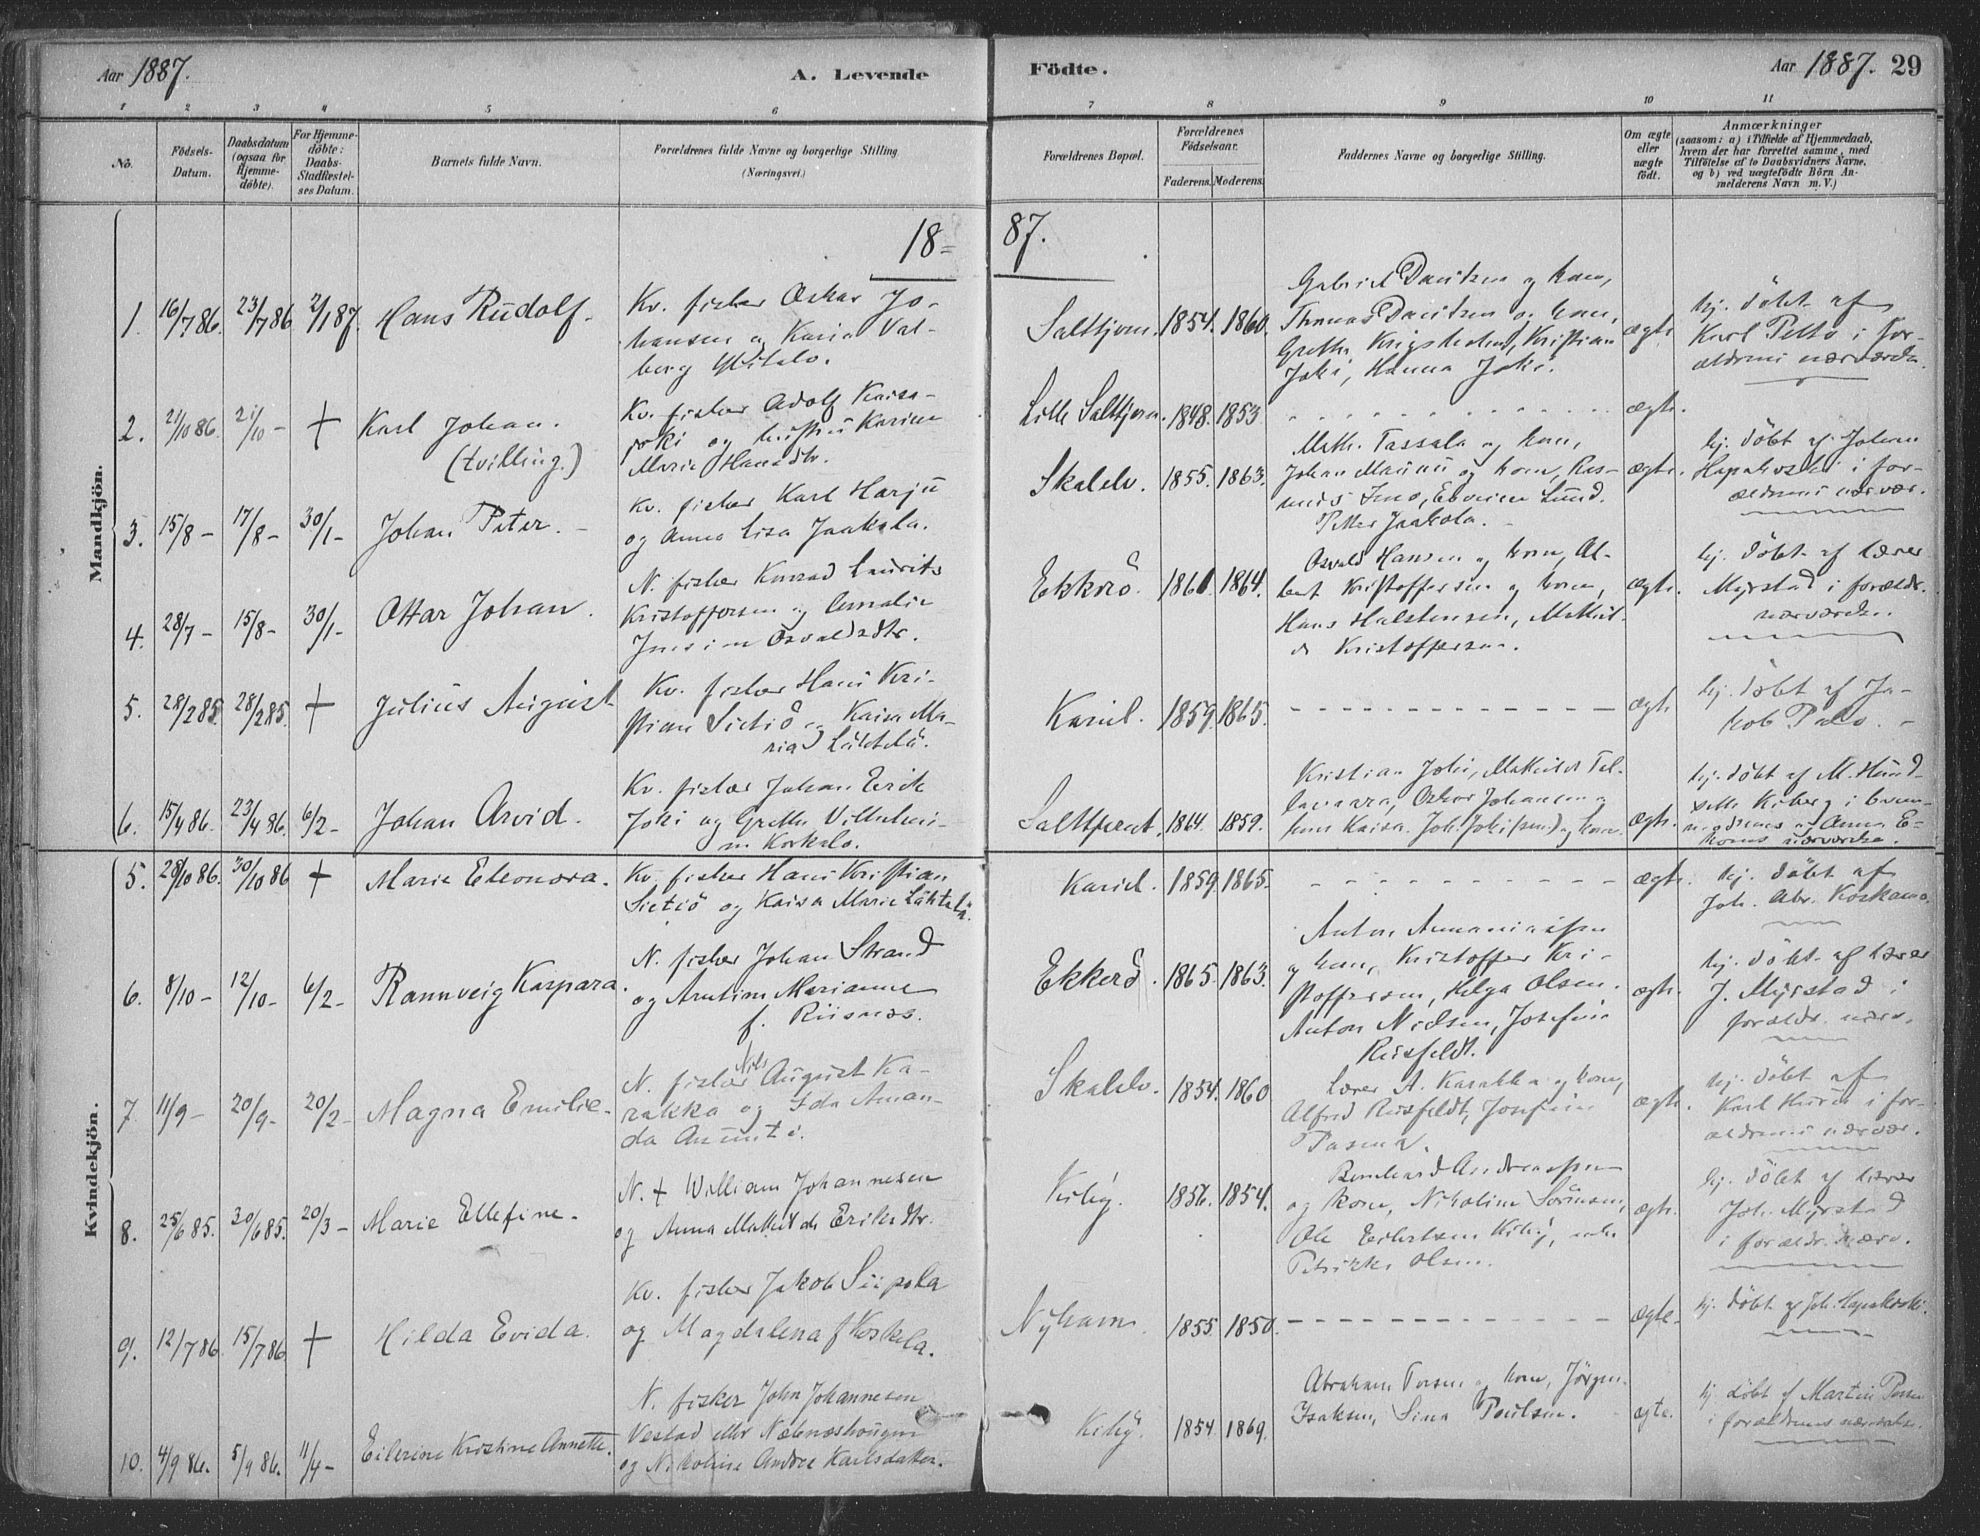 Aar 1887. A. Levende Födte. Aar 1887. 29
1 2 3 4 5 6 7 8 9 10 11
No.
Födsels-
Datum.
Daabsdatum
(ogsaa for
Hjemme-
døbte).
For Hjemme-
døbte:
Daabs-
Stadfæstel-
ses Datum.
Barnets fulde Navn.
Forældrenes fulde Navne og borgerlige Stilling
(Næringsvei.)
Forældrenes Bopæl.
Forældrenes
Födselsaar.
Faderens. Moderens.
Faddernes Navne og borgerlige Stilling.
Om ægte
eller
uægte
født.
Anmærkninger
(saasom: a) i Tilfælde af Hjemmedaab,
hvem der har forrettet samme, med
Tilföielse af to Daabsvidners Navne,
og b) ved uægtefödte Börn An-
melderens Navn m. V.)
18= 87.
Mandkjön.
1. 16/7 86. 23/7 86 2/1 87. Hans Rudolf.
Kv. fisker Oskar Jo-
hansen og Karin Val-
borg
Salttjern. 1854. 1860.
Gabriel Davitsen og kone,
Thomas Davitsen og kone,
Grethe Kristian
Joki, Hanna Joki.
ægte.
hj. döbt af
Karl Petto i for-
ældrenes nærværelse
2. 21/10 86. 21/10 - + Karl Johan.
(tvilling.)
Kv. fisker Adolf Kaisa-
joki og hustru Karine
Maria Hansdtr.
Lille Salttjern. 1848. 1853
ægte.
3. 15/8 - 17/8 - 30/1 - Johan Peter. -
Kv. fisker Karl Harju
og Anna Lisa Jaakola.
Skalelv. 1855. 1863.
Math. Tassala og kone,
Johan Maunu og kone, Ras-
mus Lund.
Petter Jaakola. -
ægte.
hj. döbt af Johan
Hapakoski i for-
ældrenes nærvær.
4. 28/7 - 15/8 - 30/1 - Ottar Johan.
N. fisker Konrad Laurits
Kristoffersen og Amalie
Jensine Osvaldsdtr.
Ekkerö. 1861. 1864.
Osvald Hansen og kone, Al-
bert Kristoffersen og kone,
Hans Halstensen, Mathil-
de Kristoffersen.
ægte.
hj. döbt af lærer
Myrstad i forældr.
nærværelse.
5. 28/2 85. 28/2 85. + Julius August
Kv. fisker Hans Kri-
stian Sietiö og Kaisa Ma-
ria Lähtelä.
Kariel. 1859. 1865.
ægte
hj. döbt af Ja-
kob Palo. -
6. 15/4 86. 23/4 86. 6/2 - Johan Arvid.
Kv. fisker Johan Erik
Joki og Grethe Vilhelmi-
ne Korkalo.
Salttjernet. 1864. 1859.
Kristian Joki, Mathilde Tal-
lavaara, Oskar Johansen og
kone Kaisa. Joh. Joki (sen) og kone
ægte.
hj. döbt af M. Hund-
sette Kiberg i
og Anna E-
nærværelse.
Kvindekjön.
5. 28/10 86. 30/10 86 + Marie Eleonora.
Kv. fisker Hans Kristian
Sietiö og Kaisa Marie Lähtelä.
Kariel. 1859 1865.
ægte.
hj. döbt af
Joh. Abr. Koskamo.
6. 8/10 - 12/10 - 6/2 - Rannveig Kaspara.
N. fisker Johan Strand
og Arntine Marianne
f. Riisnæs.
Ekkerö. 1865. 1863.
Anton Annaniassen
og kone, Kristoffer Kri-
stoffersen, Helga Olsen.
Anton Nielsen, Josefine
Reisfeldt.
ægte.
hj. döbt af lærer
J. Myrstad i
forældr. nærv.
7. 11/9 - 20/9 - 20/2 - Magna Emilie -
N. fisker Nils August Ka-
rakka og Ida Aman-
da Anunti.
Skalelv. 1854. 1860
Lærer A. Karakka og kone,
Alfred Reisfeldt, Josefine
ægte.
hj. döbt af
Karl Huru i for-
ældrenes nærvær.
8. 25/6 85. 30/6 85. 20/3 - Marie Ellefine.
N. + William Johannesen
og Anna Mathilde Eriksdtr.
Kiby. 1856. 1854.
Bernhard Andreassen
og kone, Nikoline Sörensen,
Ole Eilertsen Kiby, enke
Petrikke Olsen.
ægte.
hj. döbt af lærer
Joh. Myrstad
i forældr. nærv.
9. 12/7 86 15/7 86 + Hilda Evida.
Kv. fisker Jakob Siipola
og Magdalena f Koskela.
Nyhavn. 1855. 1850.
ægte.
hj. döbt af Joh. Hapakoski.
10. 4/9 86. 5/9 86. 11/4 - Eilerine Kristine Annette.
N. fisker John Johannesen
Vestad eller Næbneshougen
og Nikoline Andrea Karlsdatter.
Kiby. 1854. 1869.
Abraham Torsen og kone, Jörgen
Isaksen, Sina Poulsen.
ægte.
hj. döbt af Martin
i forældrenes nærværelse.